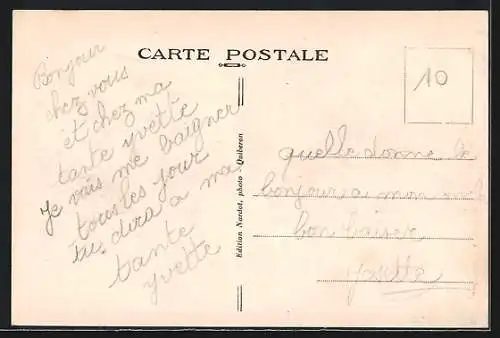 CARTE POSTALE
10
Bonjour
chez vous
et chez ma
tante yvette
Je vais me baigner
tous les jour
tu dira a ma
tante
yvette
Edition Nardot, photo - Quiberon
quelle donne le
bonjour a mon
bon baiser
yvette